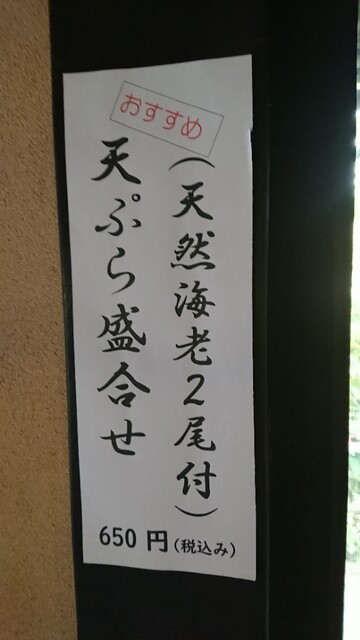 おすすめ
(天然海老2尾付)
天ぷら盛合せ
650 円(税込み)